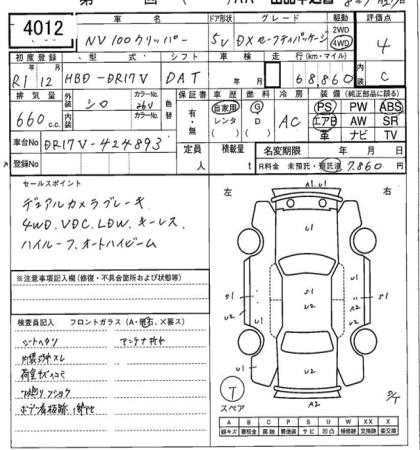 4012
車名
ドア形状
グレード
駆動
評価点
NV100クリッパー
5V
DXセーフティパッケージ
2WD
4WD
4
初度登録
型式
シフト
車検
走行(km・マイル)
内装
R1 12
HBD-DR17V
DAT
年 月
68,860
C
排気量
外装
カラーNo.
色替
保証書
車歴
燃料
冷房
装備(純正部品に限る)
660 c.c.
シロ
26U
有・無
自家用
レンタ
G
D
AC
PS PW ABS
エアB AW SR
革 ナビ TV
内装
カラーNo.
車台No
DR17V-424893
定員
人
積載量
t
名変期限 年 月 日
登録No
R料金 未預託・預託済 7,860円
セールスポイント
デュアルカメラブレーキ
4WD、VDC、LDW、キーレス
ハイルーフ、オートハイビーム
左
右
※注意事項記入欄(修復・不具合箇所および状態等)
検査員記入
フロントガラス(A・飛石・X要ス)
シートヘタリ
アンテナ折れ
A1 U1
U1
U1
S1
U2
S1
U2
S1
A2
U2
U1
U1
A2
T
スペア
A B C P S U W X XX
線キズ
腐蝕
サビ
凹凸
補修跡
要交換
交換済